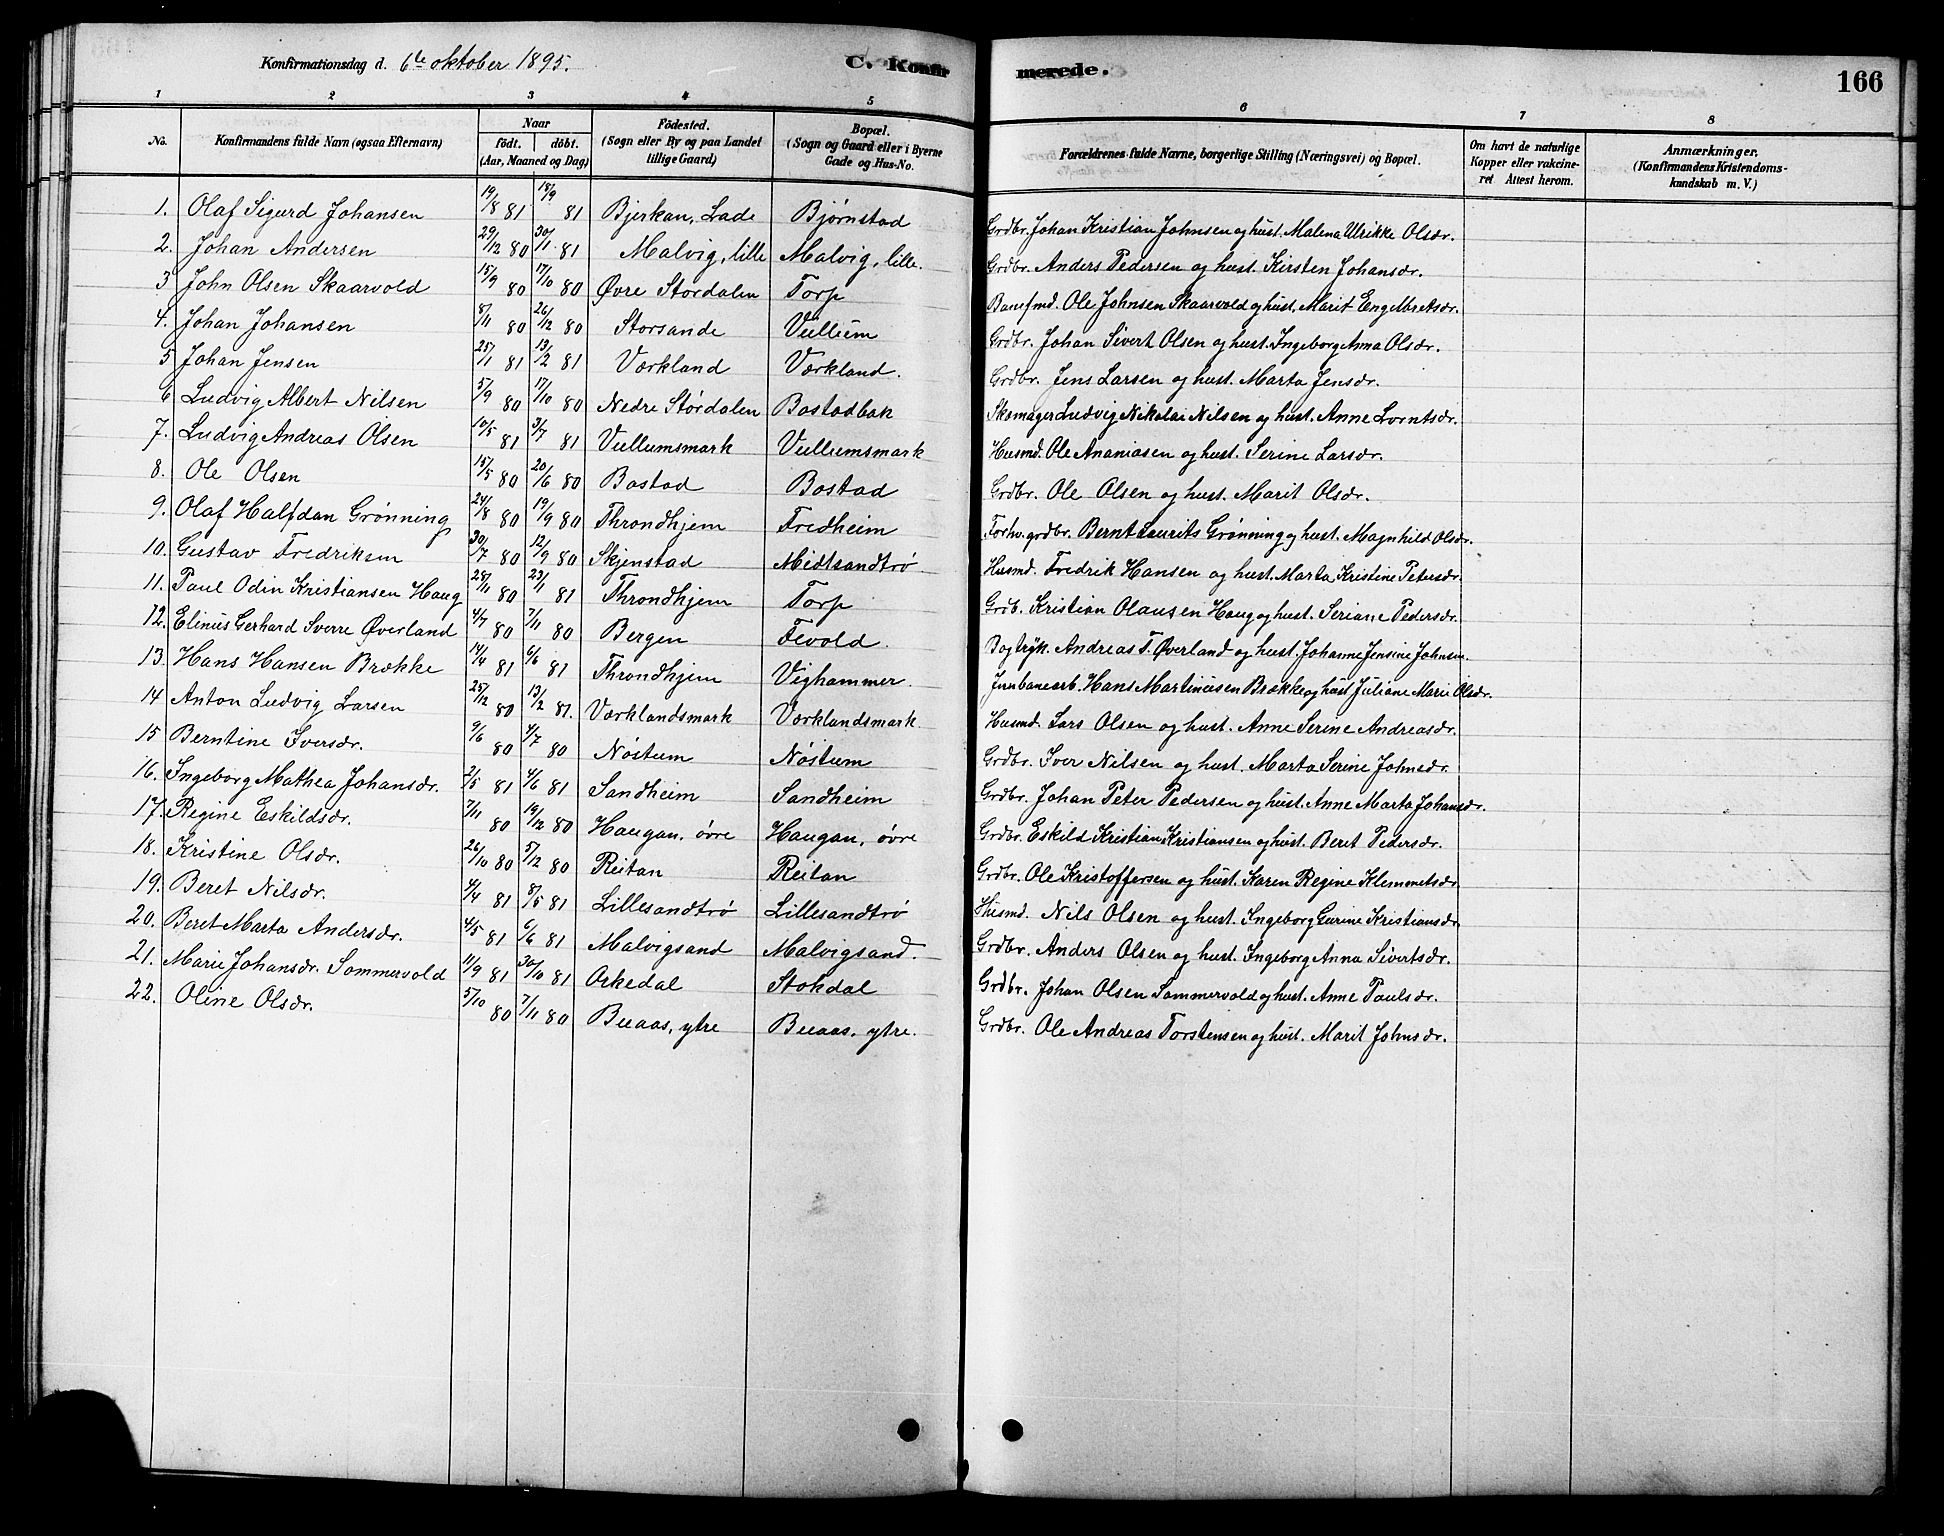 Konfirmationsdag d. 6te oktober 1895.
C. Konfirmerede.
166
1 2 3 4 5 6 7 8
No. | Konfirmandens fulde Navn (ogsaa Efternavn) | Naar födt. döbt. (Aar, Maaned og Dag) | Födested. (Sogn eller By og paa Landet tillige Gaard) | Bopæl. (Sogn og Gaard eller i Byerne Gade og Hus-No. | Forældrenes fulde Navne, borgerlige Stilling (Næringsvei) og Bopæl. | Om havt de naturlige Kopper eller vakcineret Attest herom. | Anmærkninger, (Konfirmandens Kristendomskundskab m. V.)
1. Olaf Sigurd Johansen 19/8 81 18/9 81 Bjerkan, Lade Bjørnstad Grdbr. Johan Kristian Johnsen og hust. Malena Ulrikke Olsdr.
2. Johan Andersen 29/12 80 30/1 81 Malvig, lille Malvig, lille. Grdbr. Anders Pedersen og hust. Kirsten Johansdr.
3 John Olsen Skaarvold 15/9 80 17/10 80 Øvre Stordalen Torp Banefmd. Ole Johnsen Skaarvold og hust. Marit Engelbretsdr.
4. Johan Johansen 8/11 80 26/12 80 Storsande Vullum Grdbr. Johan Sivert Olsen og hust. Ingeborg Anna Olsdr.
5 Johan Jensen 25/11 81 13/2 81 Værkland Værkland. Grdbr. Jens Larsen og hust. Marta Jensdr.
6 Ludvig Albert Nilsen 5/9 80 17/10 80 Nedre Stördalen Bostadbak Skomager Ludvig Nikolai Nilsen og hust. Anne Lorntsdr.
7. Ludvig Andreas Olsen 10/5 81 3/7 81 Vullumsmark Vullumsmark Husmd. Ole Ananiasen og hust. Serine Larsdr.
8. Ole Olsen 15/5 80 20/6 80 Bostad Bostad Grdbr. Ole Olsen og hust. Marit Olsdr.
9. Olaf Halfdan Grønning 24/8 80 19/9 80 Throndhjem Fredheim Forhv. grdbr. Bernt Laurits Grønning og hust. Magnhild Olsdr.
10. Gustav Fredriksen 30/7 80 12/9 80 Skjenstad Midtsandtrö Husmd. Fredrik Hansen og hust. Marta Kristine Petersdr.
11. Paul Odin Kristiansen Haug 28/11 80 23/1 81 Throndhjem Torp Grdb. Kristian Olausen Haug og hust. Seriane Pedersdr.
12. Elinus Gerhard Sverre Øverland 4/7 80 7/11 80 Bergen Fevold. Bogtryk. Andreas T. Øverland og hust. Johanne Jensine Johnsen.
13. Hans Hansen Brække 14/4 81 6/6 81 Throndhjem Vighammer Jernbanearb. Hans Martinusen Brække og hust. Juliane Marie Olsdr.
14 Anton Ludvig Larsen 25/12 80 13/2 81. Værklandsmark Værklandsmark Husmd. Lars Olsen og hust. Anne Serine Andreasdr.
15 Berntine Iversdr. 9/6 80 4/7 80 Nöstum Nöstum Grdbr. Iver Nilsen og hust. Marta Serine Johnsdr.
16. Ingeborg Mathea Johansdr. 2/5 81 4/6 81 Sandheim Sandheim Grdbr. Johan Peter Pedersen og hust. Anne Marta Johansdr.
17. Regine Eskildsdr. 7/11 80 19/12 80 Haugan, övre Haugan, övre Grdbr. Eskild Kristian Kristiansen og hust. Beret Pedersdr.
18. Kristine Olsdr. 26/10 80 5/12 80 Reitan Reitan Grdbr. Ole Kristoffersen og hust. Karen Regine Klemmetsdr.
19. Beret Nilsdr. 4/4 81 8/5 81 Lillesandtrö Lillesandtrö Husmd. Nils Olsen og hust. Ingeborg Gurine Kristiansdr.
20. Beret Marta Andersdr. 4/5 81 6/6 81 Malvigsand Malvigsand. Grdbr. Anders Olsen og hust. Ingeborg Anna Sivertsdr.
21. Marie Johansdr. Sommervold 11/9 81 30/10 81 Orkedal Stokdal Grdbr. Johan Olsen Sommervold og hust. Anne Paulsdr.
22. Oline Olsdr. 5/10 80 7/11 80 Buaas, ytre Buaas, ytre. Grdbr. Ole Andreas Torstensen og hust. Marit Johnsdr.